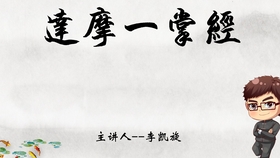 達摩一掌經
主讲人--李凱旋